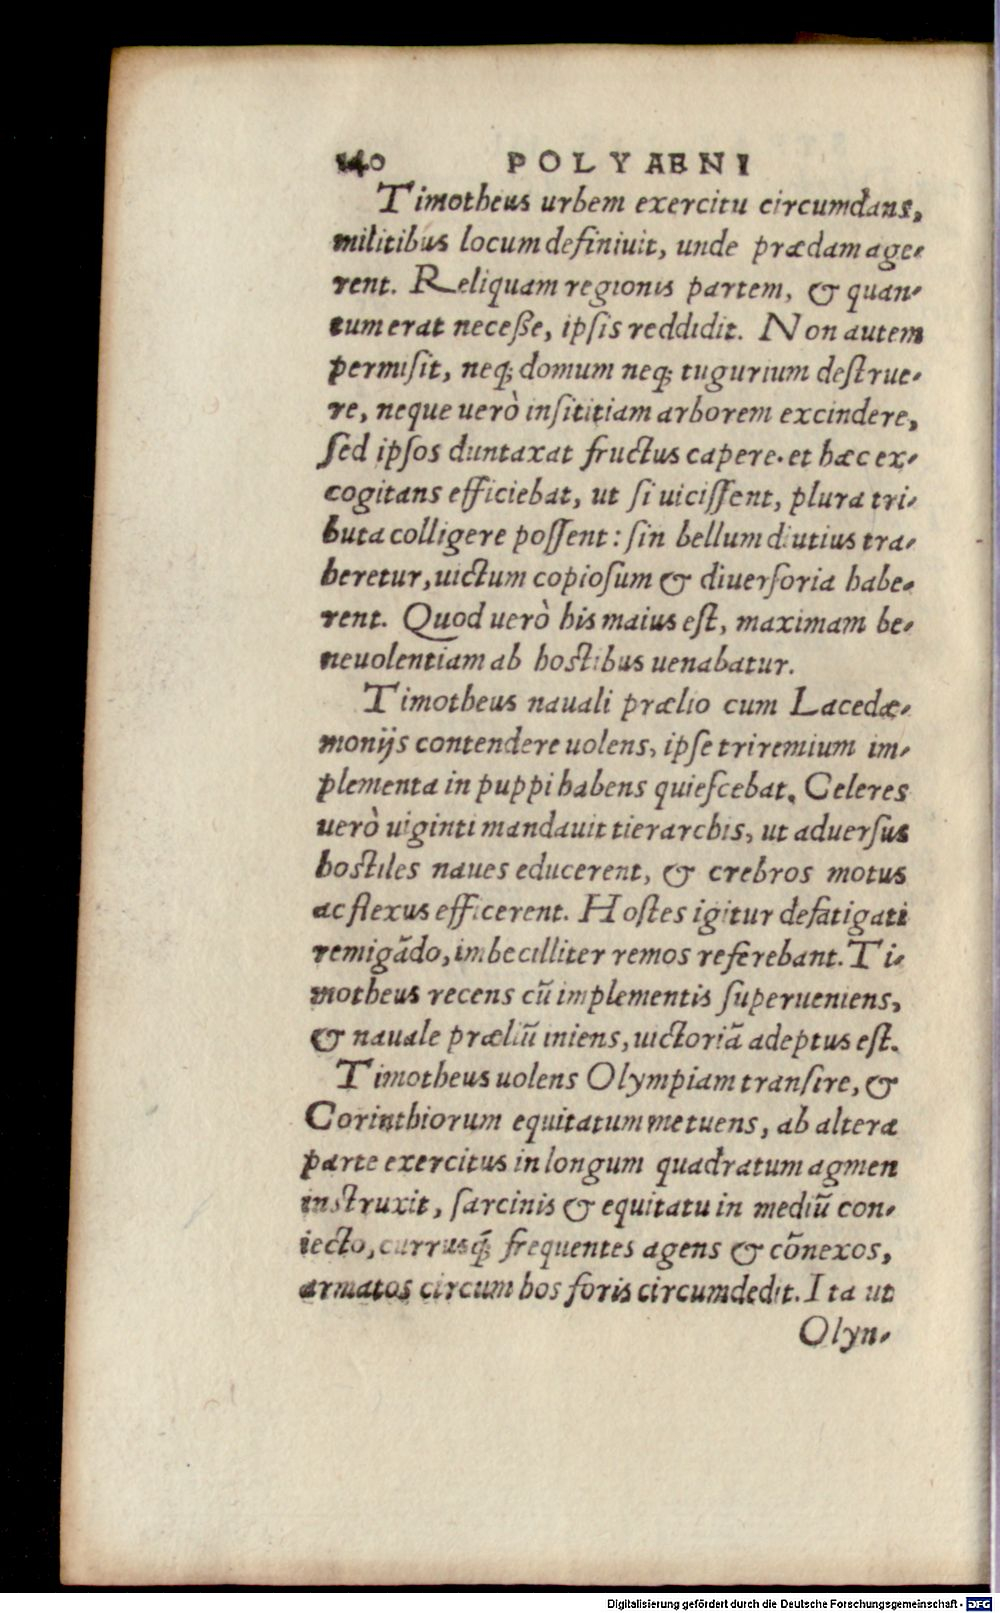 140 POLYAENI
Timotheus urbem exercitu circumdans,
militibus locum definiuit, unde prædam age-
rent. Reliquam regionis partem, & quan-
tum erat neceße, ipſis reddidit. Non autem
permiſit, neq; domum neq; tugurium deſtrue-
re, neque uerò inſititiam arborem excindere,
ſed ipſos duntaxat fructus capere. et hæc ex-
cogitans efficiebat, ut ſi uiciſſent, plura tri-
buta colligere poſſent: ſin bellum diutius tra-
heretur, uictum copioſum & diuerſoria habe-
rent. Quod uerò his maius eſt, maximam be-
neuolentiam ab hoſtibus uenabatur.
Timotheus nauali prælio cum Lacedæ-
monijs contendere uolens, ipſe triremium im-
plementa in puppi habens quieſcebat. Celeres
uerò uiginti mandauit tierarchis, ut aduerſus
hoſtiles naues educerent, & crebros motus
ac flexus efficerent. Hoſtes igitur defatigati
remigãdo, imbecilliter remos referebant. Ti-
motheus recens cũ implementis ſuperueniens,
& nauale præliũ iniens, uictoriã adeptus eſt.
Timotheus uolens Olympiam tranſire, &
Corinthiorum equitatum metuens, ab altera
parte exercitus in longum quadratum agmen
inſtruxit, ſarcinis & equitatu in mediũ con-
iecto, currusq́; frequentes agens & cõnexos,
armatos circum hos foris circumdedit. Ita ut
Olyn-
Digitalisierung gefördert durch die Deutsche Forschungsgemeinschaft - DFG